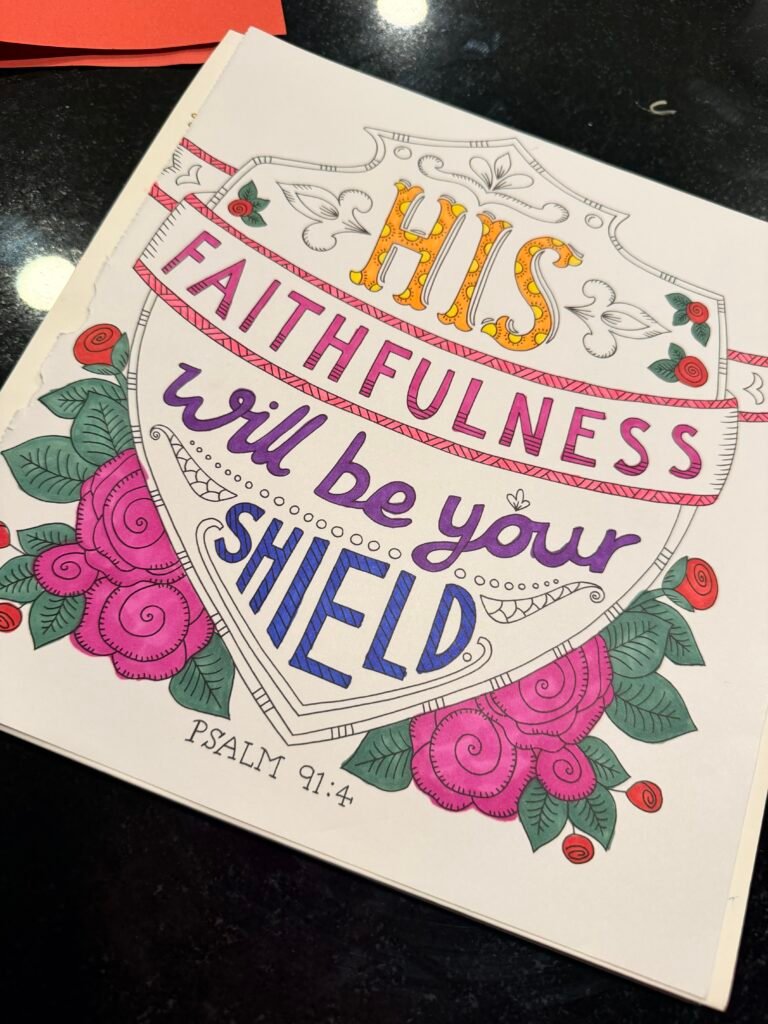 HIS
FAITHFULNESS
will be your
SHIELD
PSALM 91:4